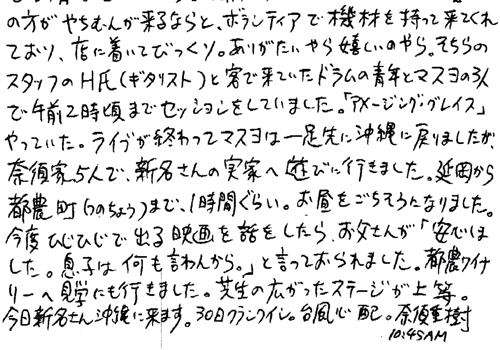 の方がやちむんが来るならと、ボランティアで機材を持って来てくれ
ており、店に着いてびっくり。ありがたいやら嬉しいのやら。そちらの
スタッフのH氏(ギタリスト)と客で来ていたドラムの青年とマスヨの3人
で午前2時頃までセッションをしていました。「アメージンググレイス」
やっていた。ライブが終わってマスヨは一足先に沖縄に戻りましたが、
奈須家5人で、新名さんの実家へ遊びに行きました。延岡から
都農町(つのちょう)まで、1時間ぐらい。お昼をごちそうになりました。
今度ひじひじで出る映画を話をしたら、お父さんが「安心しま
した。息子は何も言わんから。」と言っておられました。都農ワイナ
リーへ見学にも行きました。芝生の広がったステージが上等。
今日新名さん沖縄に来ます。30日クランクイン。台風心配。奈須重樹
10:45AM